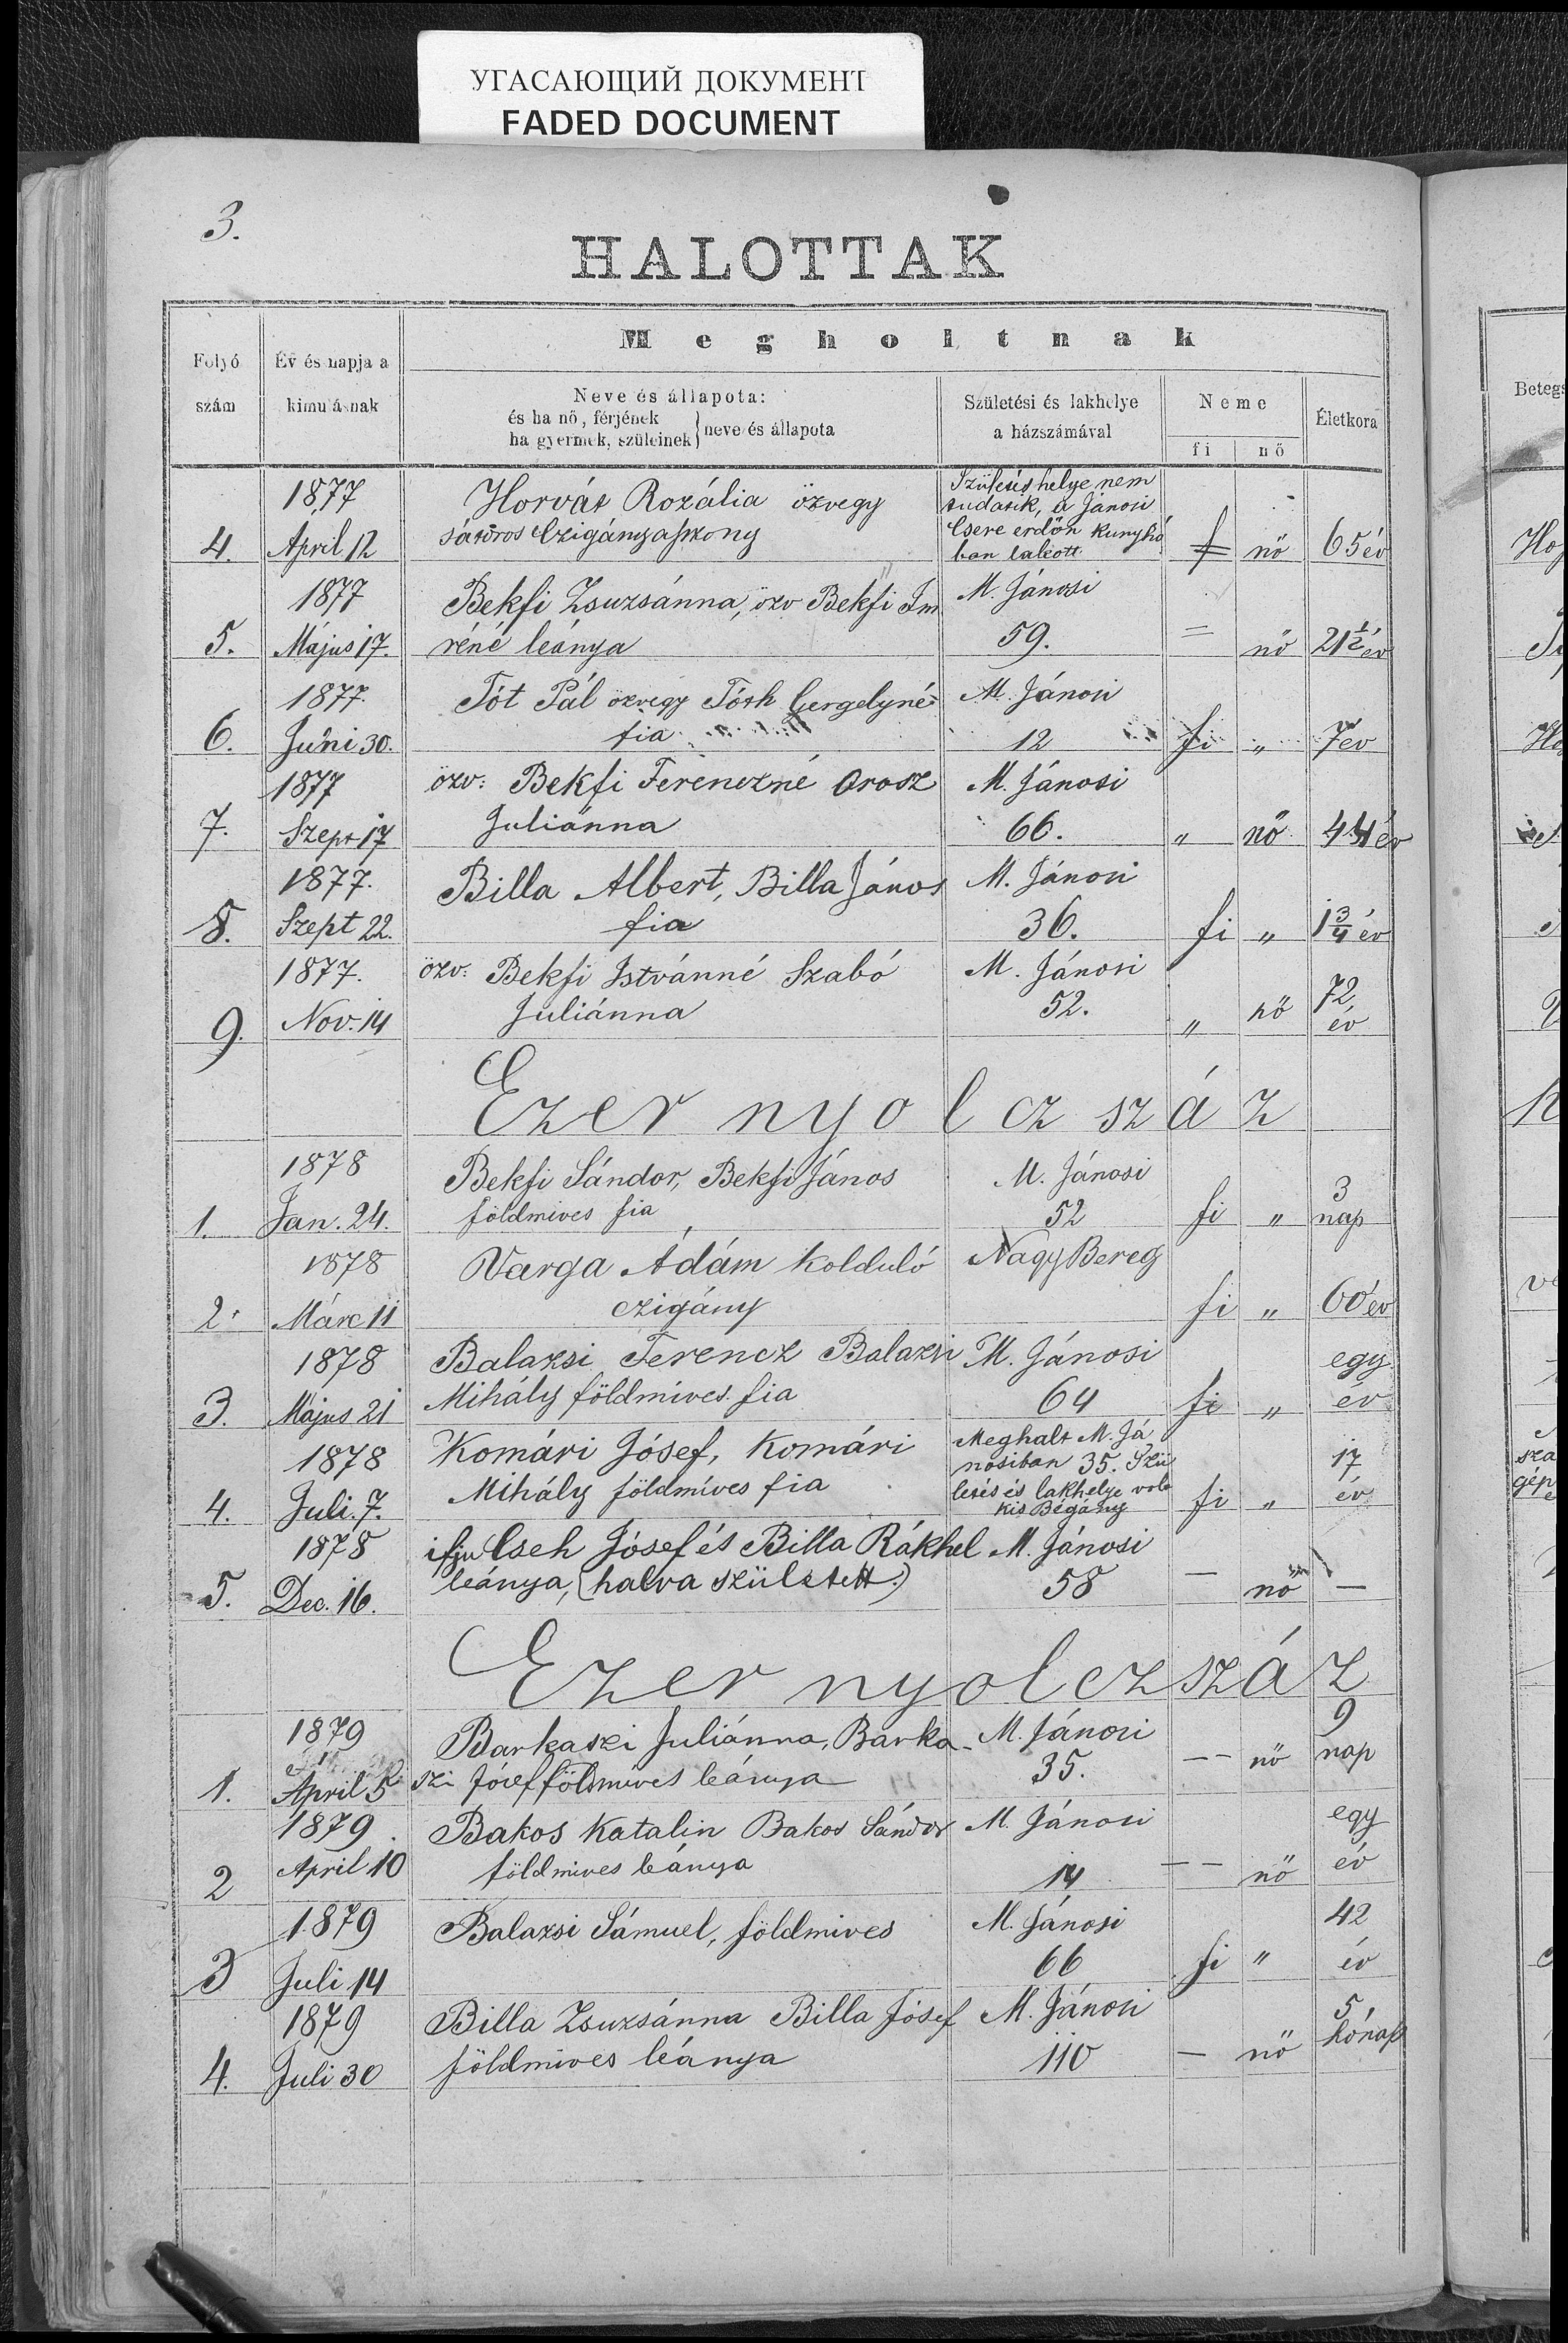 УГАСАЮЩИЙ ДОКУМЕНТ
FADED DOCUMENT
3.
HALOTTAK
Folyó szám
Év és napja a kimulásnak
Megholtnak
Neve és állapota:
és ha nő, férjének
ha gyermek, szüleinek } neve és állapota
Születési és lakhelye
a házszámával
Neme
fi nő
Életkora
Betegs
1877 Horvát Rozália özvegy Szülésishelye nem
tudatik, a Jánosi
4. April 12 sátoros Czigányaszony Csere erdőn kunyhó
ban lakott nő 65 év
1877 Bekfi Zsuzsánna, özv Bekfi Im M. Jánosi
5. Május 17. réné leánya 59. = nő 21 1/2 év
1877. Tót Pál özvegy Tóth Gergelyné M. Jánosi
6. Juni 30. fia 12 fi " 7 év
1877 özv: Bekfi Ferenczné Orosz M. Jánosi
7. Szept 17 Juliánna 66. " nő 44 év
1877. Billa Albert, Billa János M. Jánosi
8. Szept 22. fia 36. fi " 1 3/4 év
1877. özv: Bekfi Istvánné Szabó M. Jánosi
9. Nov. 14 Juliánna 52. " nő 72 év
Ezer nyolcz száz
1878 Bekfi Sándor, Bekfi János M. Jánosi
1. Jan. 24. földmives fia 52 fi " 3 nap
1878 Varga Ádám kolduló Nagy Bereg
2. Márc 11 czigány fi " 60 év
1878 Balazsi Ferencz Balazsi M. Jánosi egy
3. Május 21 Mihály földmives fia 64 fi " év
1878 Komári Jósef, Komári Meghalt M. Já
nosiban 35. Szü 17
4. Juli. 7. Mihály földmives fia letés és lakhelye volt
kis Bégány fi " év
1878 ifju Cseh Jósef és Billa Rákhel M. Jánosi
5. Dec. 16. leánya, (halva született.) 58 — nő —
Ezer nyolcz száz
1879 Barkaszi Juliánna, Barka- M. Jánosi 9
1. April 5 szi Jósef földmives leánya 35. -- nő nap
1879 Bakos Katalin Bakos Sándor M. Jánosi egy
2 April 10 földmives leánya 14 -- nő év
1879 Balazsi Sámuel, földmives M. Jánosi 42
3 Juli 14 66 fi " év
1879 Billa Zsuzsánna Billa Jósef M. Jánosi 5
4. Juli 30 földmives leánya 110 — nő hónap